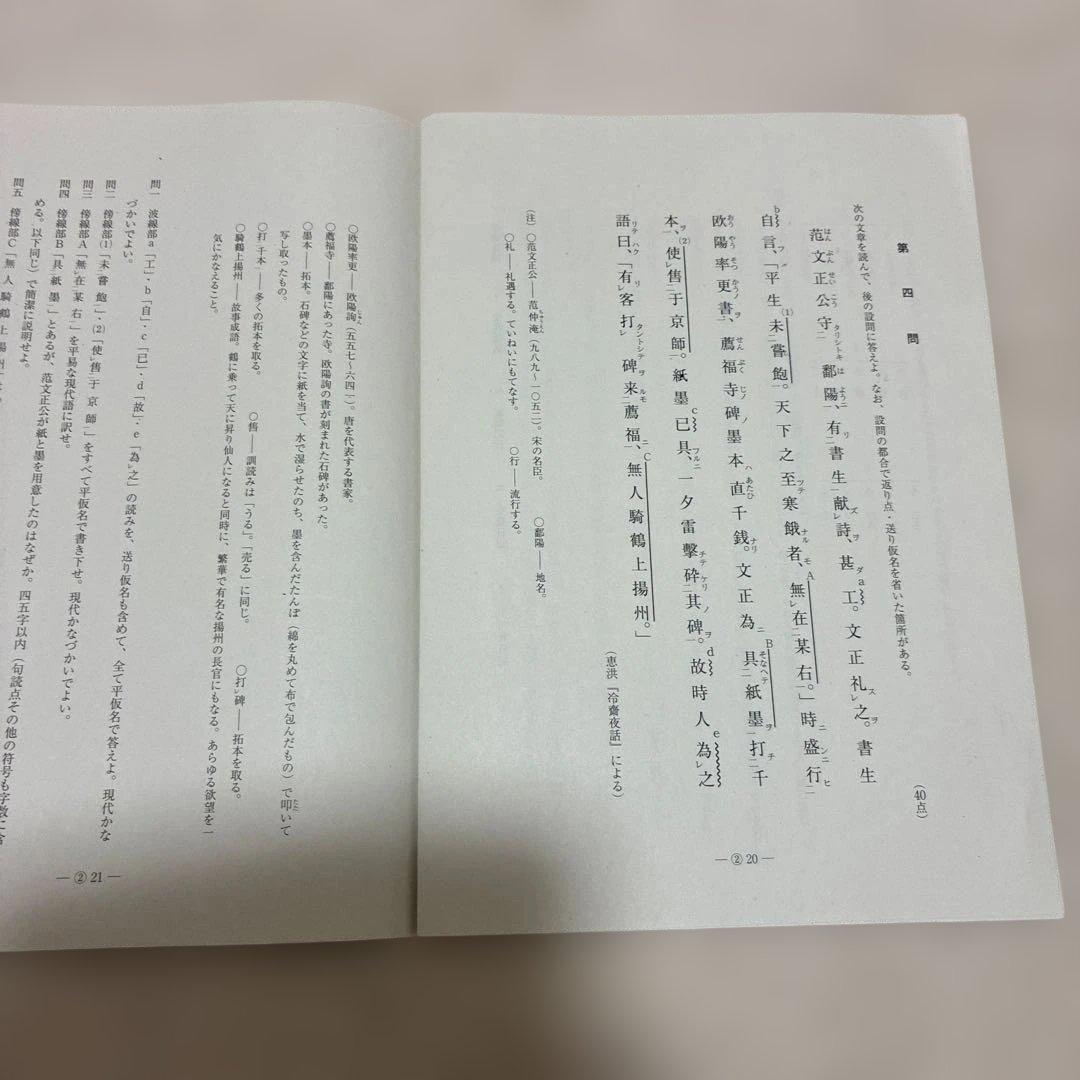 第四問
次の文章を読んで、後の設問に答えよ。なお、設問の都合で返り点・送り仮名を省いた箇所がある。
(40点)
范文正公守鄱陽、有書生献詩、甚工。文正礼之。書生
自言、「平生未嘗飽。天下之至寒餓者、無在某右。」時盛行
欧陽率更書、薦福寺碑墨本直千銭。文正為具紙墨打千
本、使售于京師。紙墨已具、一夕雷擊砕其碑。故時人為之
語曰、「有客打碑来薦福、無人騎鶴上揚州。」
(恵洪『冷齋夜話』による)
(注) ○范文正公――范仲淹(九八九~一〇五二)。宋の名臣。 ○鄱陽――地名。
○礼――礼遇する。ていねいにもてなす。 ○行――流行する。
― ② 20 ―
○欧陽率更――欧陽詢(五五七~六四一)。唐を代表する書家。
○薦福寺――鄱陽にあった寺。欧陽詢の書が刻まれた石碑があった。
○墨本――拓本。石碑などの文字に紙を当て、水で湿らせたのち、墨を含んだたんぽ(綿を丸めて布で包んだもの)で叩いて
写し取ったもの。
○打千本――多くの拓本を取る。 ○售――訓読みは「うる」。「売る」に同じ。 ○打碑――拓本を取る。
○騎鶴上揚州――故事成語。鶴に乗って天に昇り仙人になると同時に、繁華で有名な揚州の長官にもなる。あらゆる欲望を一
気にかなえること。
問一 波線部a「工」・b「自」・c「已」・d「故」・e「為之」の読みを、送り仮名も含めて、全て平仮名で答えよ。現代かな
づかいでよい。
問二 傍線部(1)「未嘗飽」・(2)「使售于京師」をすべて平仮名で書き下せ。現代かなづかいでよい。
問三 傍線部A「無在某右」を平易な現代語に訳せ。
問四 傍線部B「具紙墨」とあるが、范文正公が紙と墨を用意したのはなぜか。四五字以内(句読点その他の符号も字数に含
める。以下同じ)で簡潔に説明せよ。
問五 傍線部C「無人騎鶴上揚州」
― ② 21 ―